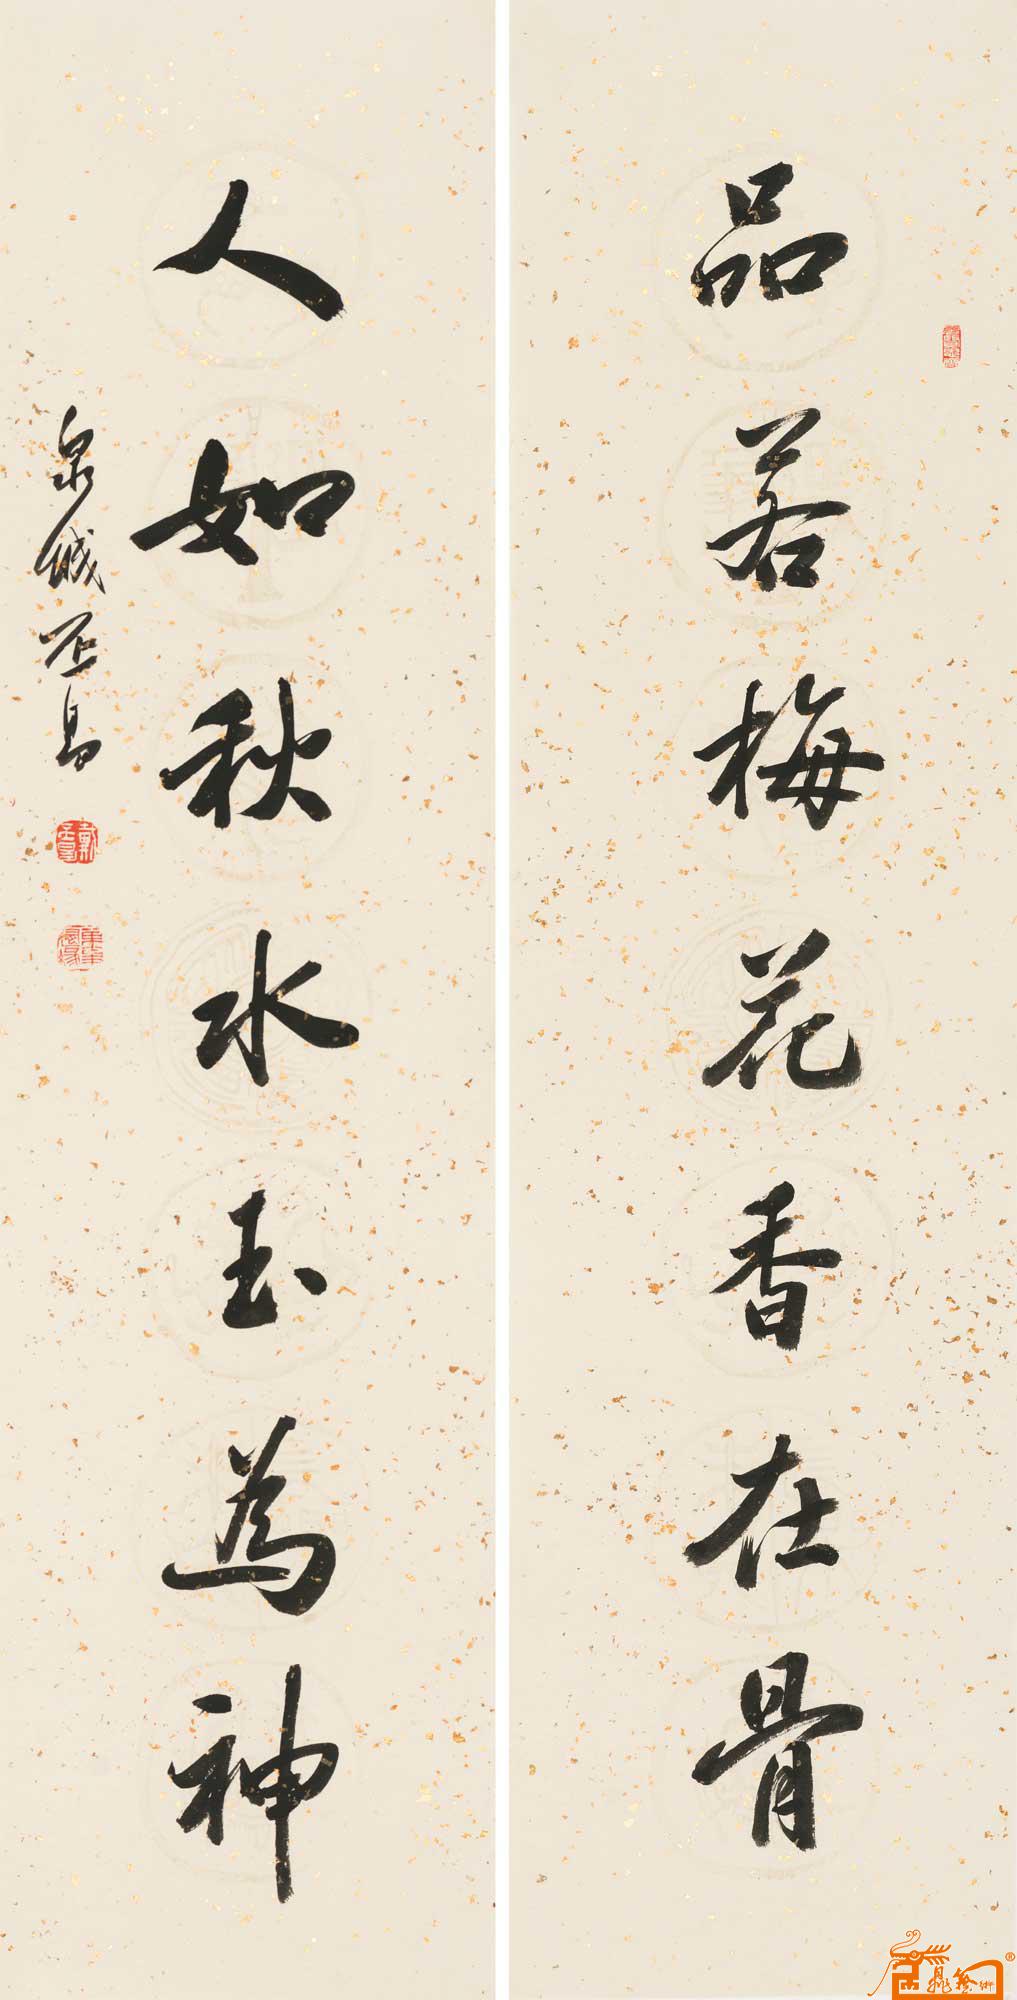 品若梅花香在骨
人如秋水玉為神
泉城